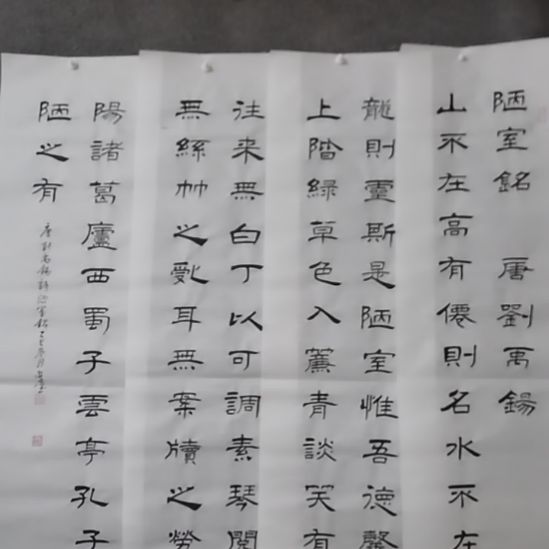 陋室銘 唐劉禹錫
山不在高有僊則名水不在
龍則靈斯是陋室惟吾德馨
上階綠草色入簾青談笑有
往来無白丁以可調素琴閱
無絲竹之亂耳無案牘之勞
陽諸葛廬西蜀子雲亭孔子
陋之有
唐劉禹錫詩陋室銘